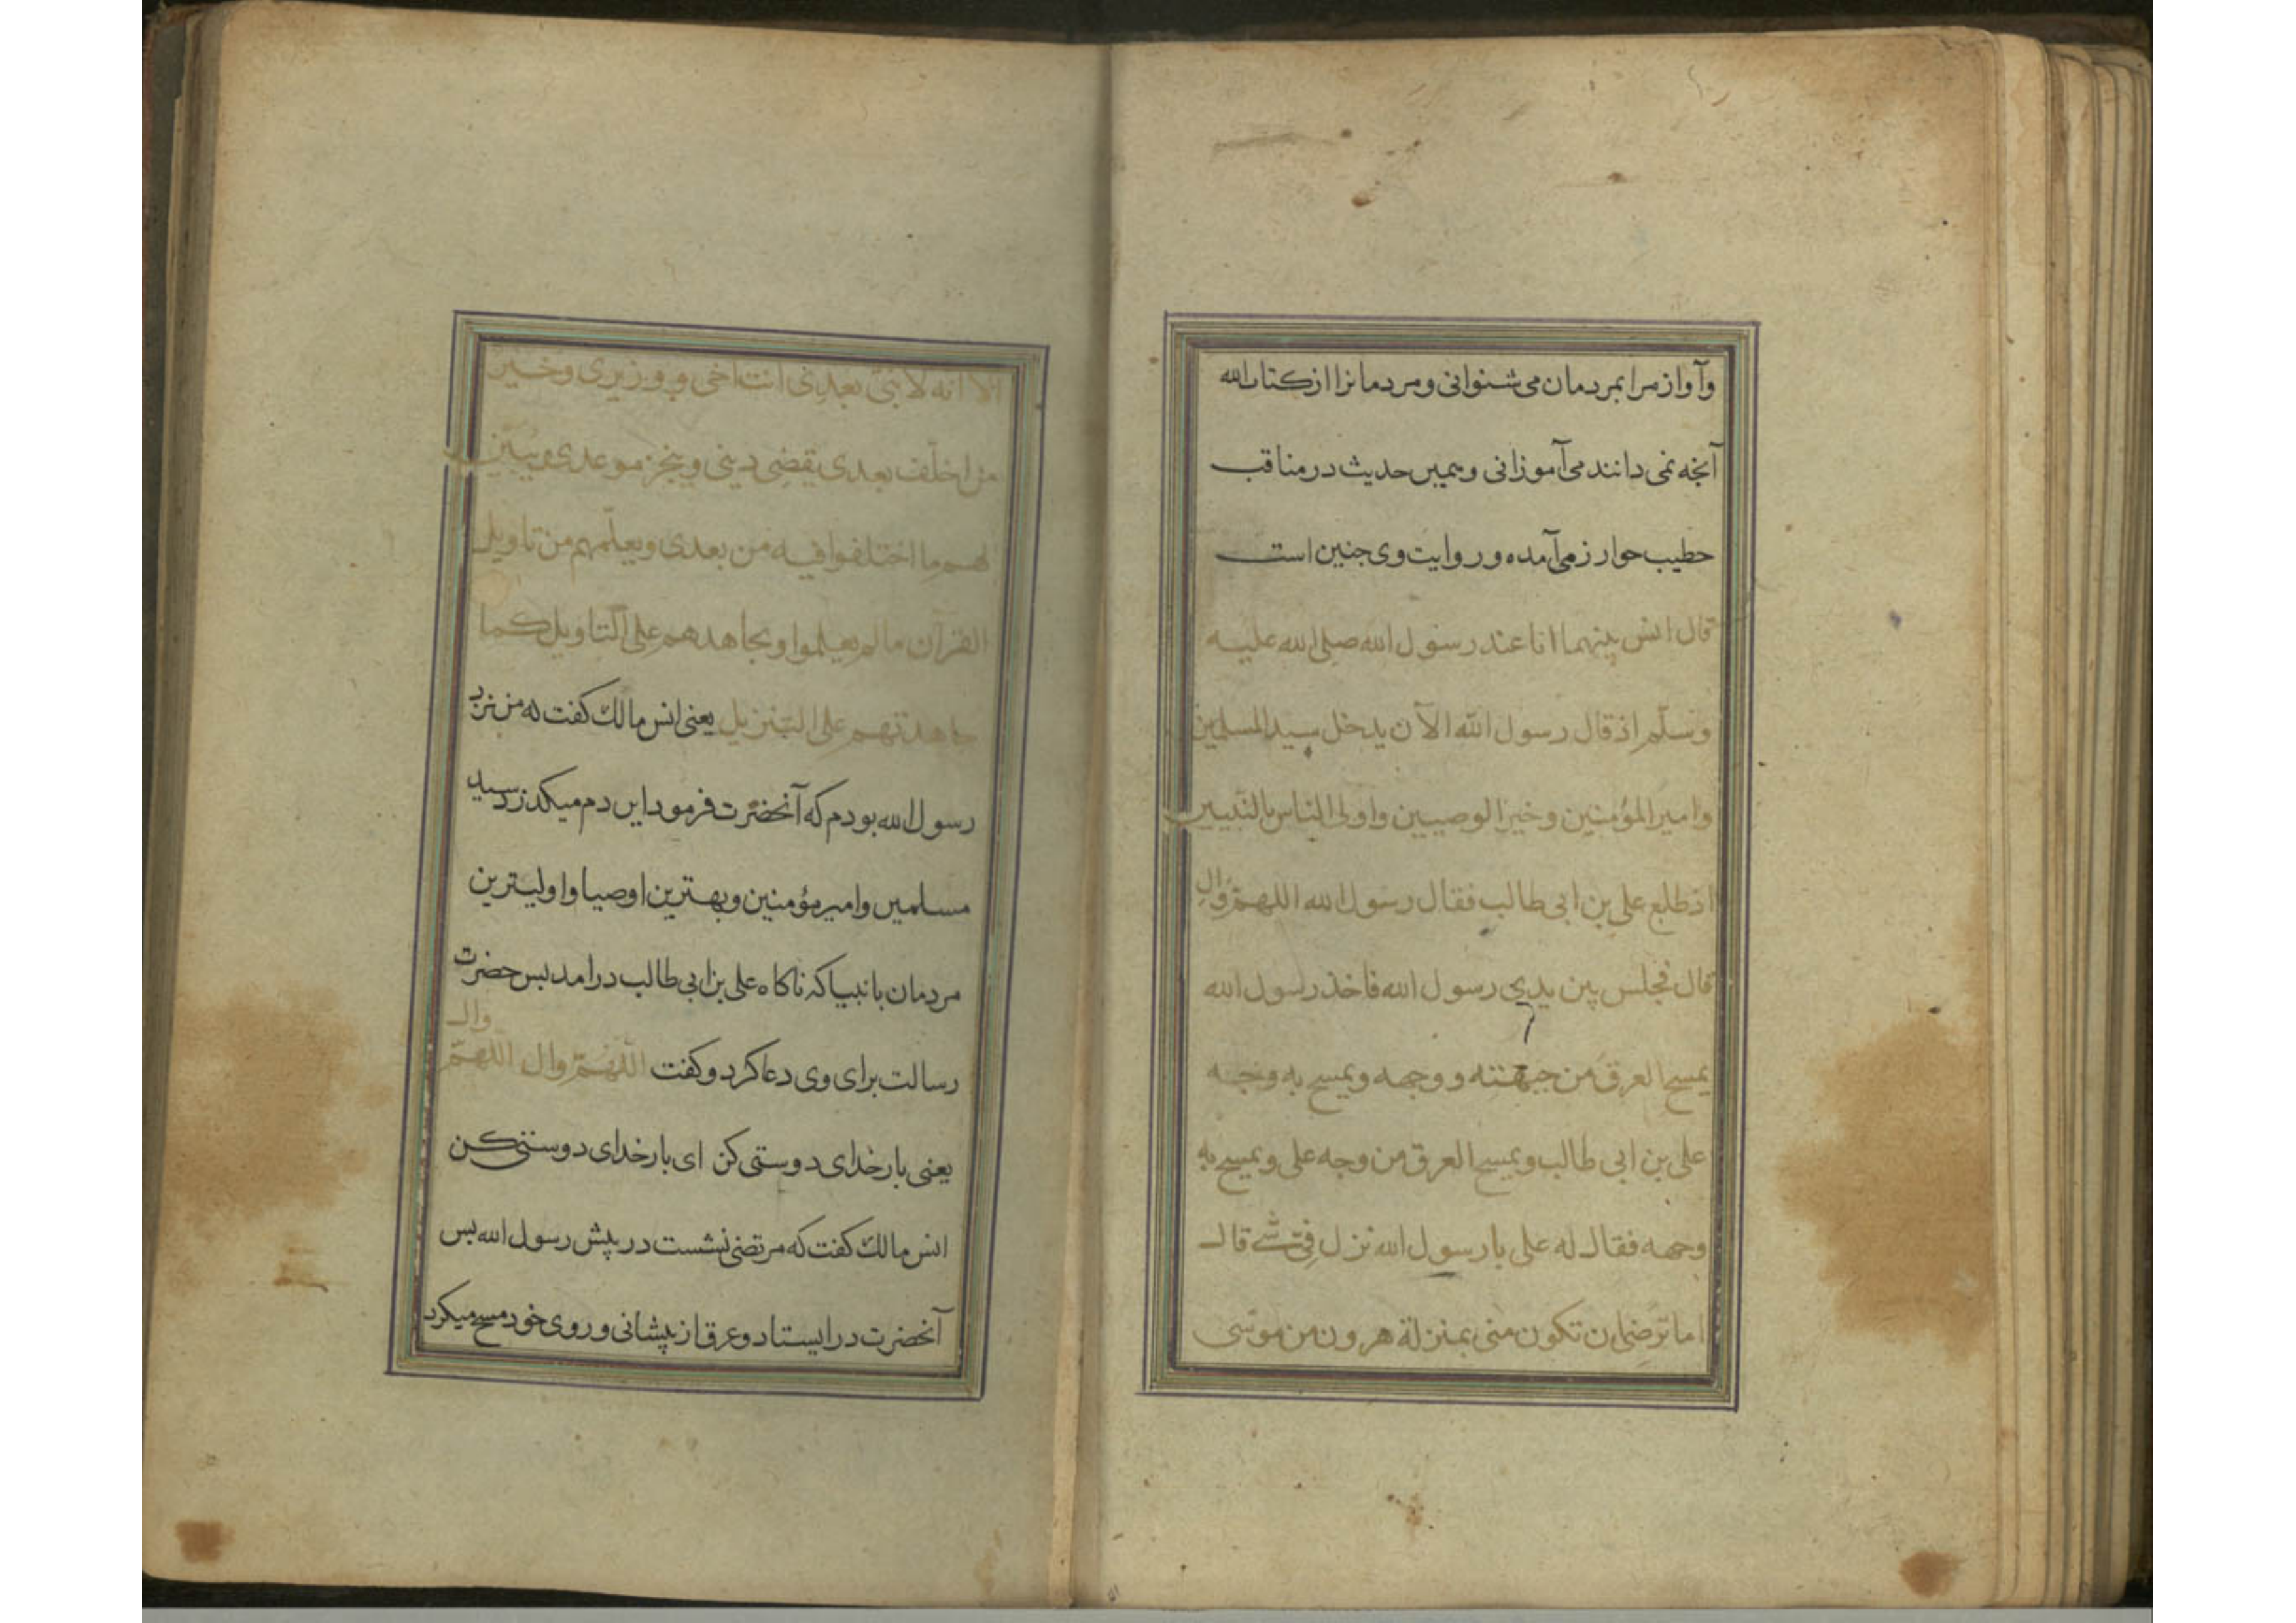 وآواز مرا بمردمان می شنوانی و مردمانرا از کتاب الله
آنجه نمی دانند می آموزانی و همین حدیث در مناقب
خطیب خوارزمی آمده و روایت وی جنین است
قال انس بینهما انا عند رسول الله صلی الله علیه
وسلّم اذ قال رسول الله الآن یدخل سید المسلمین
وامیر المؤمنین وخیر الوصیین واولی الناس بالنّبیین
اذ طلع علی بن ابی طالب فقال رسول الله اللهمّ وال
قال فجلس بین یدی رسول الله فاخذ رسول الله
یمسح العرق من جبهته و وجهه ویمسح به وجه
علی بن ابی طالب ویمسح العرق من وجه علی ویمسح به
وجهه فقال له علی یا رسول الله نزل فیّ شی قال
اما ترضی ان تکون منی بمنزلة هرون من موسی
الا انه لا نبیّ بعدی انت اخی و وزیری وخیر
من اخلّف بعدی یقضی دینی وینجز موعدی ویبیّن
لهم ما اختلفوا فیه من بعدی ویعلّمهم من تاویل
القرآن ما لم یعلموا ویجاهدهم علی التاویل کما
جاهدتهم علی التنزیل یعنی انس مالک کفت که من نزد
رسول الله بودم که آنحضرت فرمود این دم میکذرد سید
مسلمین وامیر مؤمنین و بهترین اوصیا و اولیترین
مردمان بانبیا که ناکاه علی بن ابی طالب در امد بس حضرت
رسالت برای وی دعا کرد و کفت اللهمّ وال اللهمّ وال
یعنی بارخدای دوستی کن ای بارخدای دوستی کن
انس مالک کفت که مرتضی نشست در پیش رسول الله بس
آنحضرت در ایستاد و عرق از پیشانی و روی خود مسح میکرد